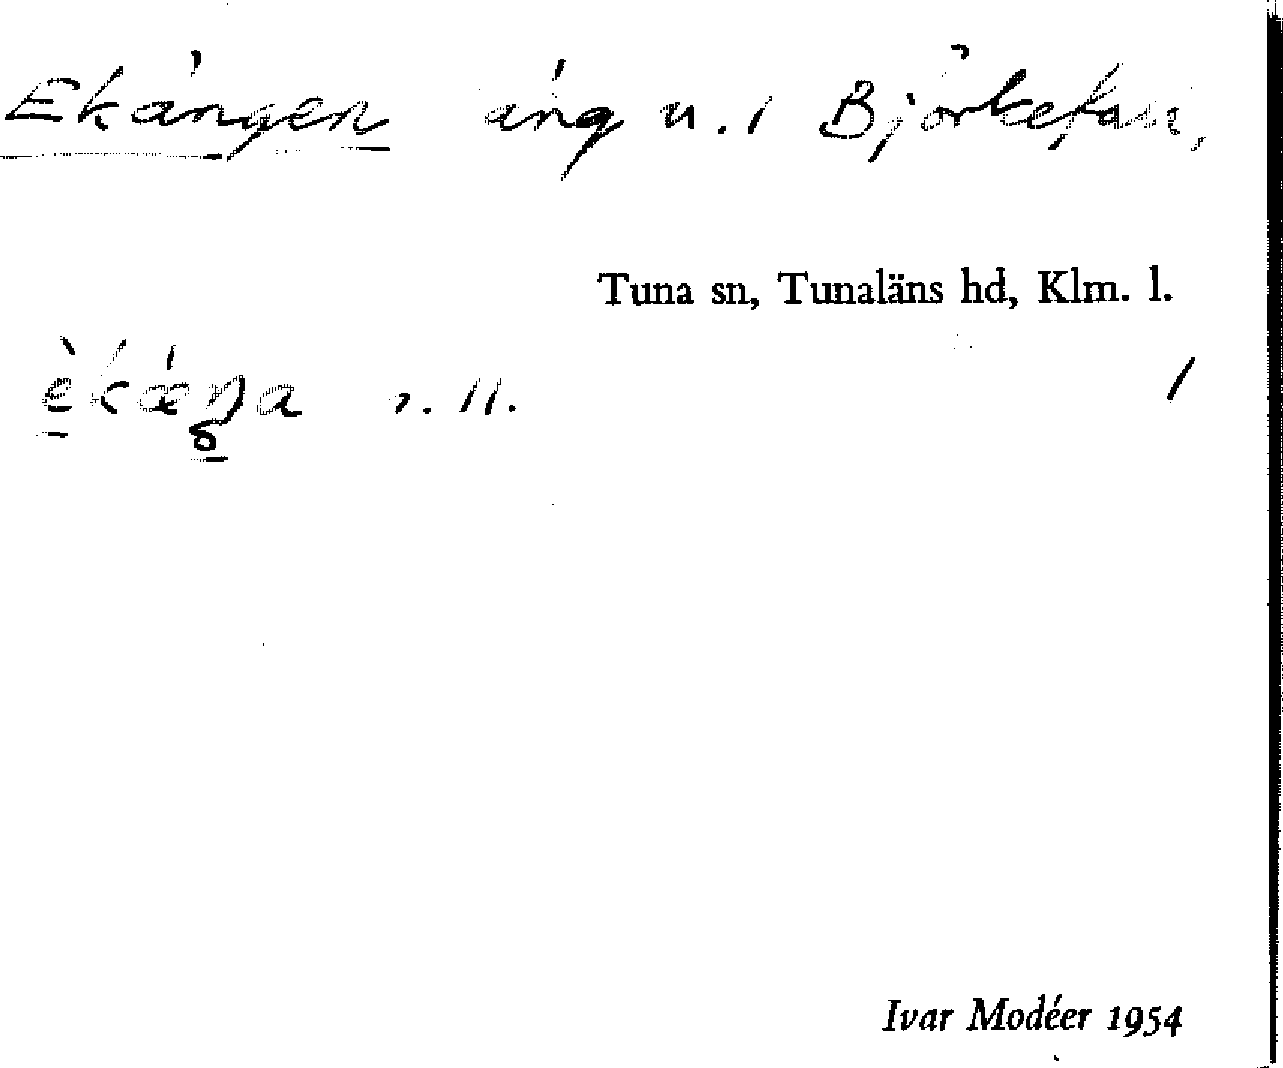 Ekängen äng u. i Björkefall,
Tuna sn, Tunaläns hd, Klm. l.
1
r. ll.
Ivar Modéer 1954